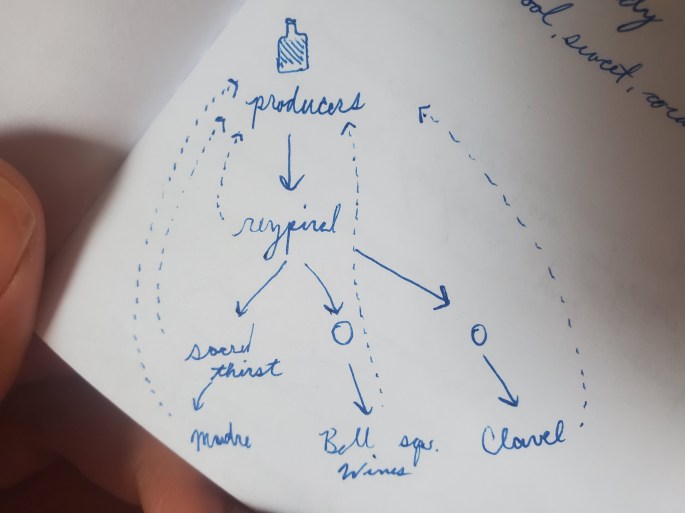 dy
ool, sweet,
producers
sacred
thirst
Madre
Bell sqr.
Wines
Clavel